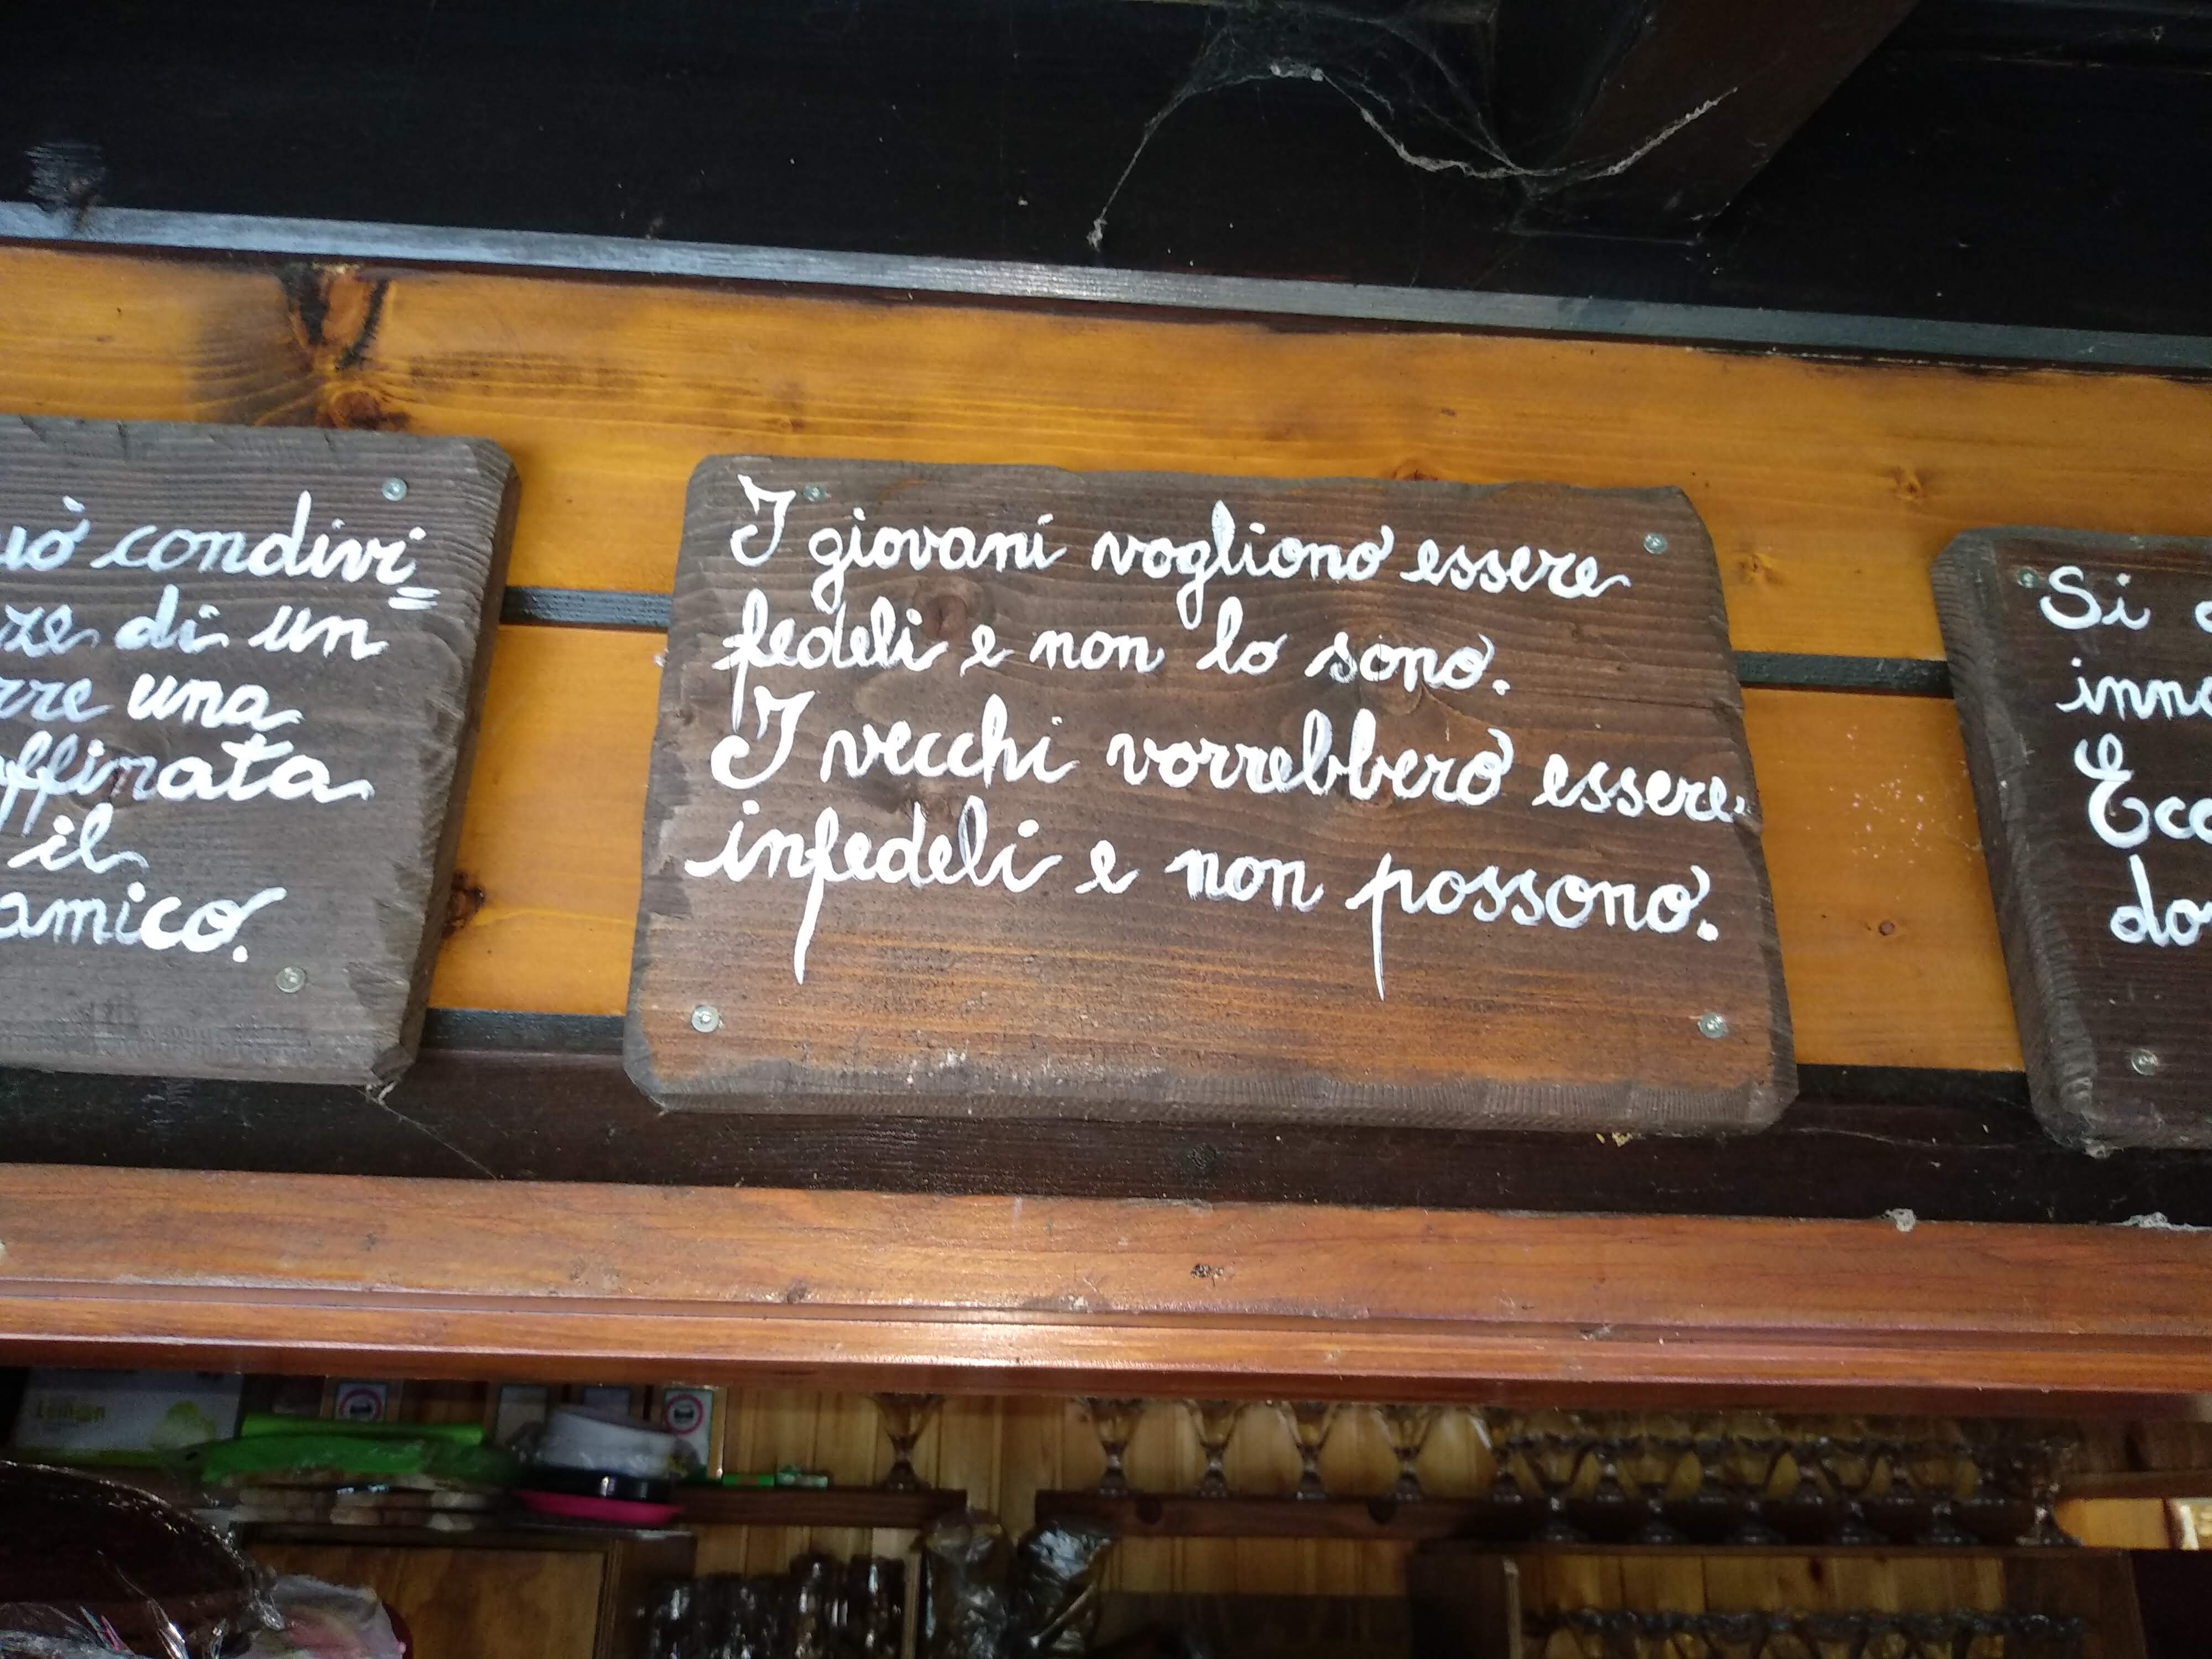 condivi=
di un
una
il
amico.
I giovani vogliono essere
fedeli e non lo sono.
I vecchi vorrebbero essere
infedeli e non possono.
Si